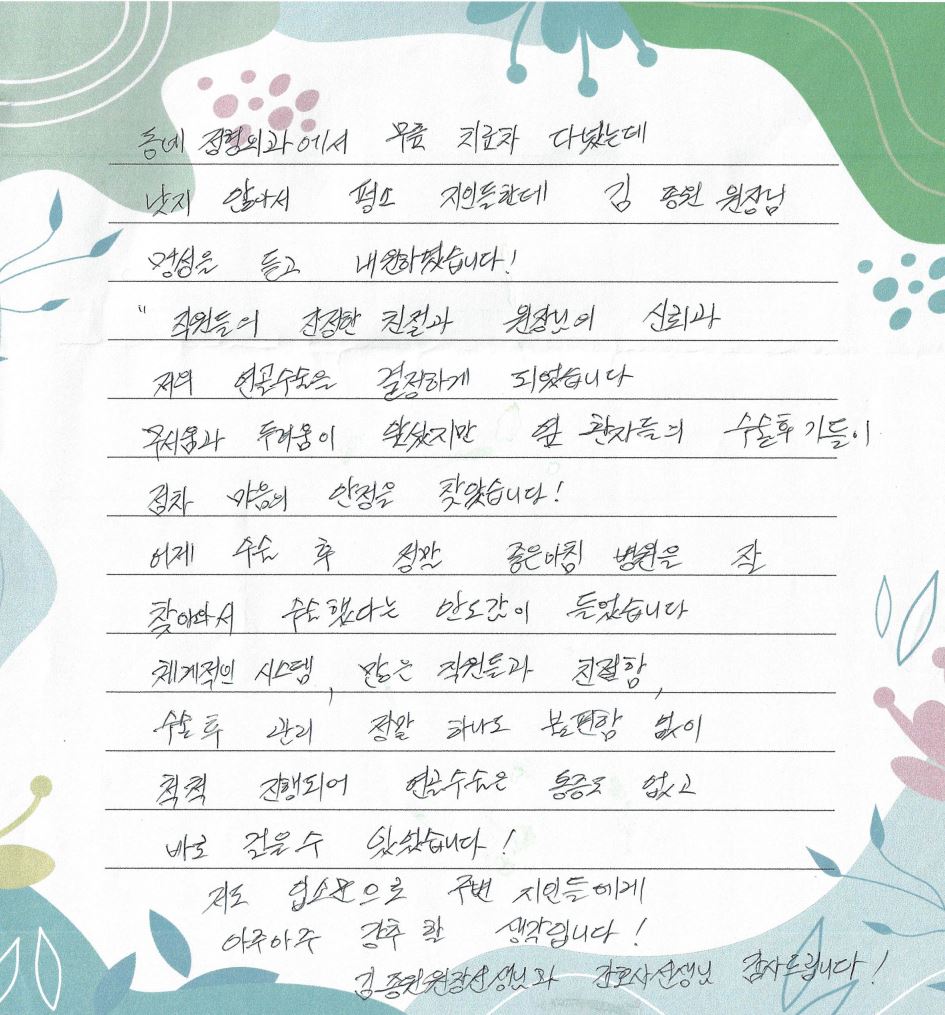 동네 정형외과에서 무릎 치료차 다녔는데
낫지 않아서 평소 지인들한데 김 종원 원장님
명성을 듣고 내원하였습니다!
" 직원들의 진정한 친절과 원장님의 신뢰과
저의 연골수술을 결정하게 되었습니다
무서움과 두려움이 앞섰지만 옆 환자들의 수술후기들이
점차 마음의 안정을 찾았습니다!
어제 수술 후 정말 좋은아침 병원을 잘
찾아와서 수술했다는 안도감이 들었습니다
체계적인 시스템, 많은 직원들과 친절함,
수술후 관리 정말 하나도 불편함 없이
척척 진행되어 연골수술은 통증도 없고
바로 걸을수 있었습니다!
저도 입소문으로 주변 지인들에게
아주아주 강추 할 생각입니다!
김종원원장선생님과 간호사선생님 감사드립니다!